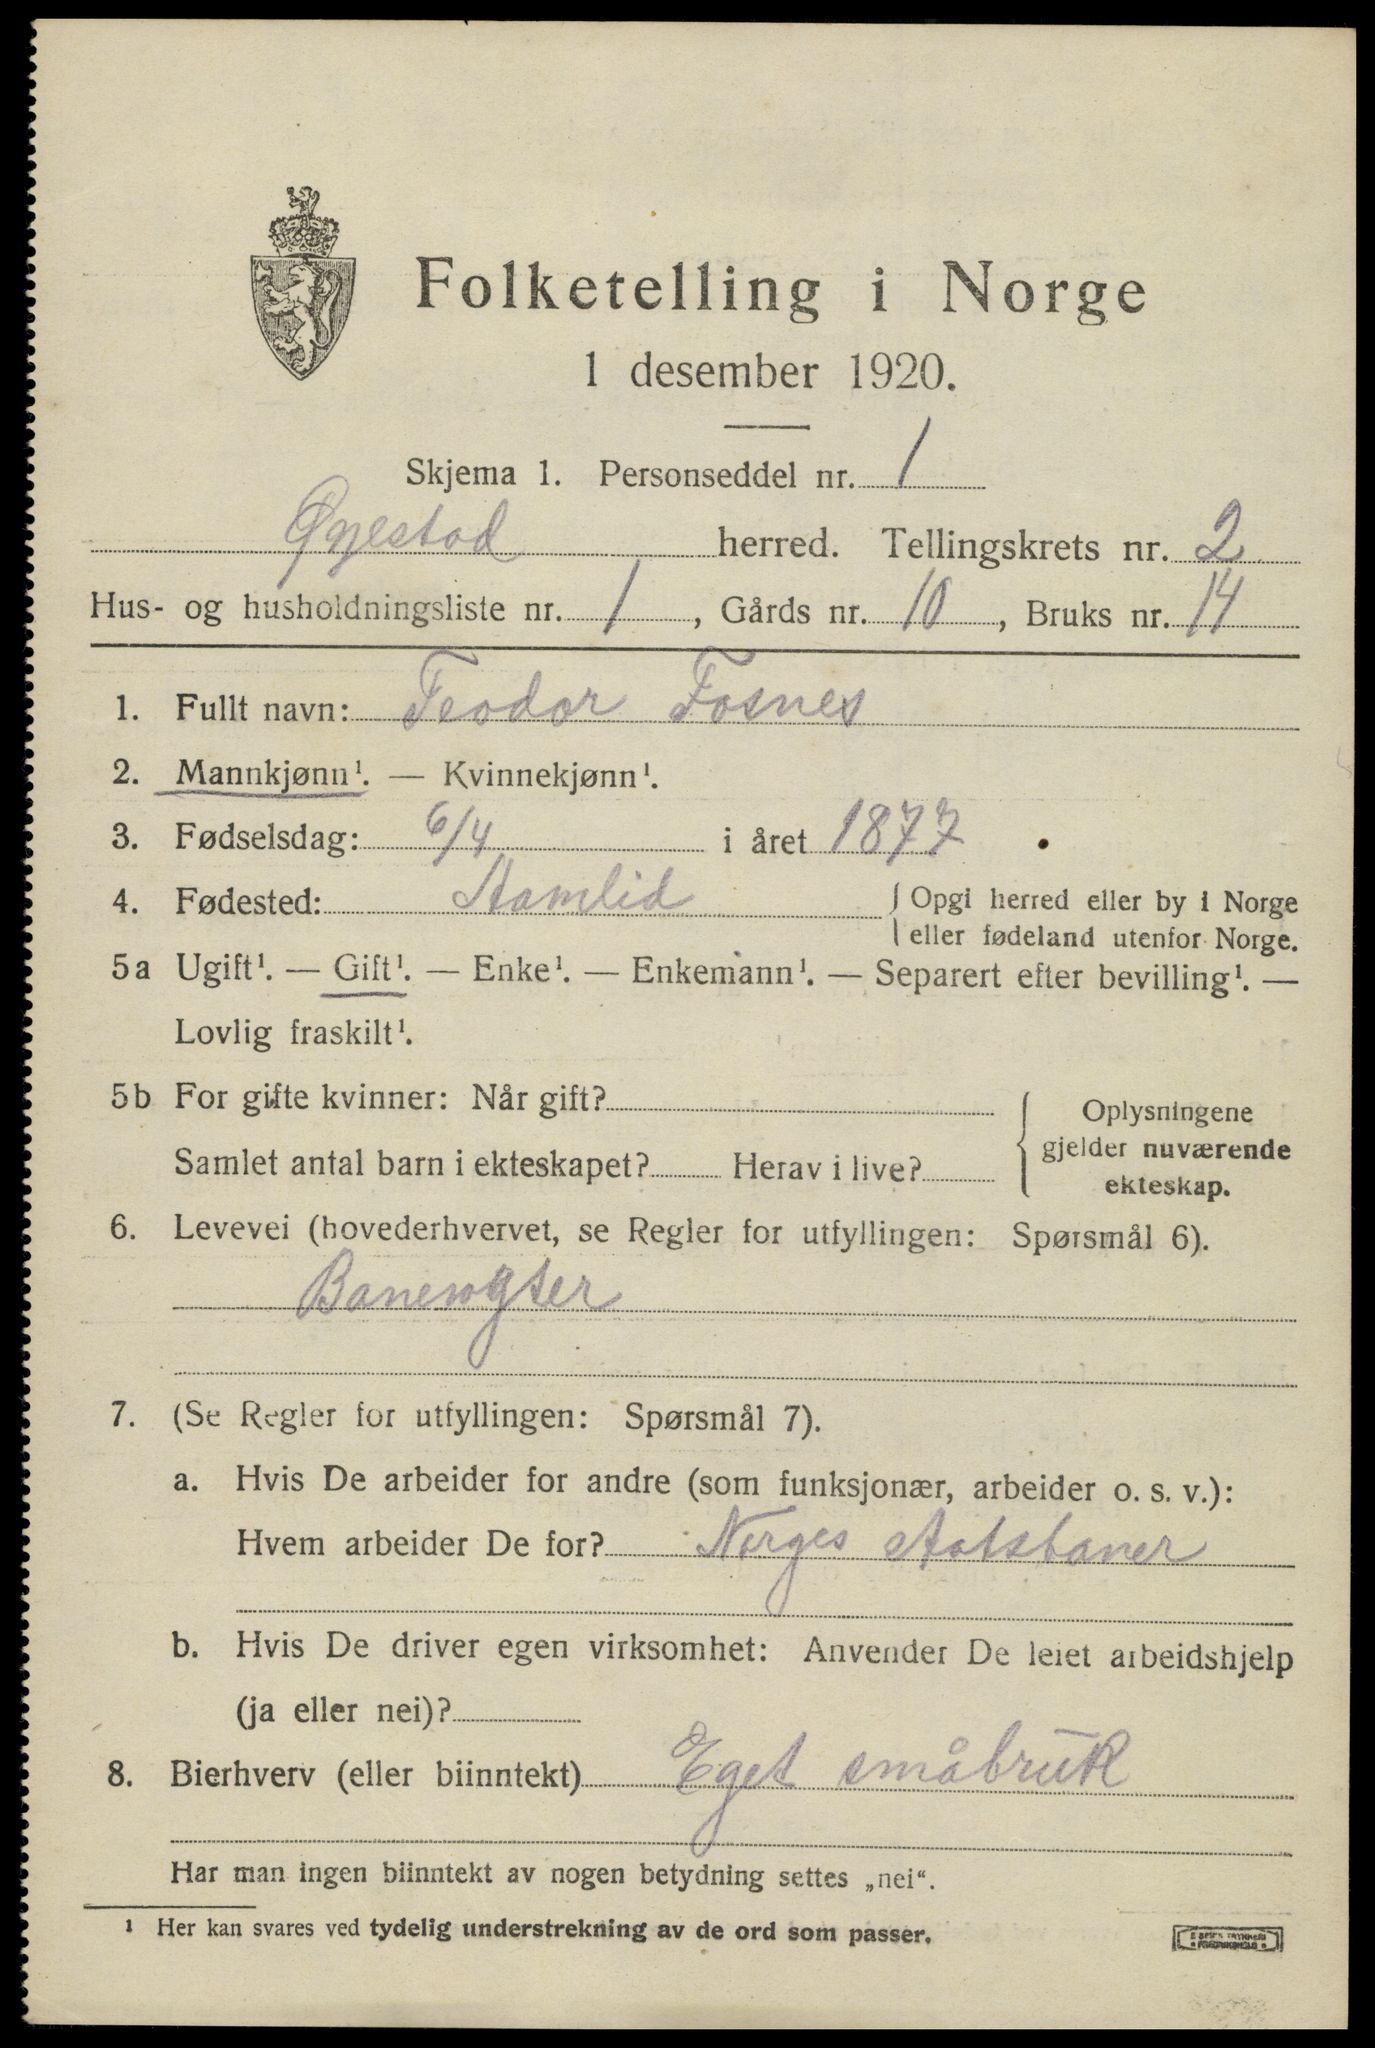 Folketelling i Norge
1 desember 1920.
Skjema 1. Personseddel nr. 1
Øyestad herred. Tellingskrets nr. 2
Hus- og husholdningsliste nr. 1, Gårds nr. 10, Bruks nr. 14
1. Fullt navn: Teodor Fosnes
2. Mannkjønn¹. — Kvinnekjønn¹.
3. Fødselsdag: 6/4 i året 1877
4. Fødested: Åamlid { Opgi herred eller by i Norge
eller fødeland utenfor Norge.
5a Ugift¹. — Gift¹. — Enke¹. — Enkemann¹. — Separert efter bevilling¹. —
Lovlig fraskilt¹.
5b For gifte kvinner: Når gift? { Oplysningene
gjelder nuværende
ekteskap.
Samlet antal barn i ekteskapet? Herav i live?
6. Levevei (hovederhvervet, se Regler for utfyllingen: Spørsmål 6).
Banevogter
7. (Se Regler for utfyllingen: Spørsmål 7).
a. Hvis De arbeider for andre (som funksjonær, arbeider o. s. v.):
Hvem arbeider De for? Norges Statsbaner
b. Hvis De driver egen virksomhet: Anvender De leiet arbeidshjelp
(ja eller nei)?
8. Bierhverv (eller biinntekt) Eget småbruk
Har man ingen biinntekt av nogen betydning settes „nei“.
1 Her kan svares ved tydelig understrekning av de ord som passer.